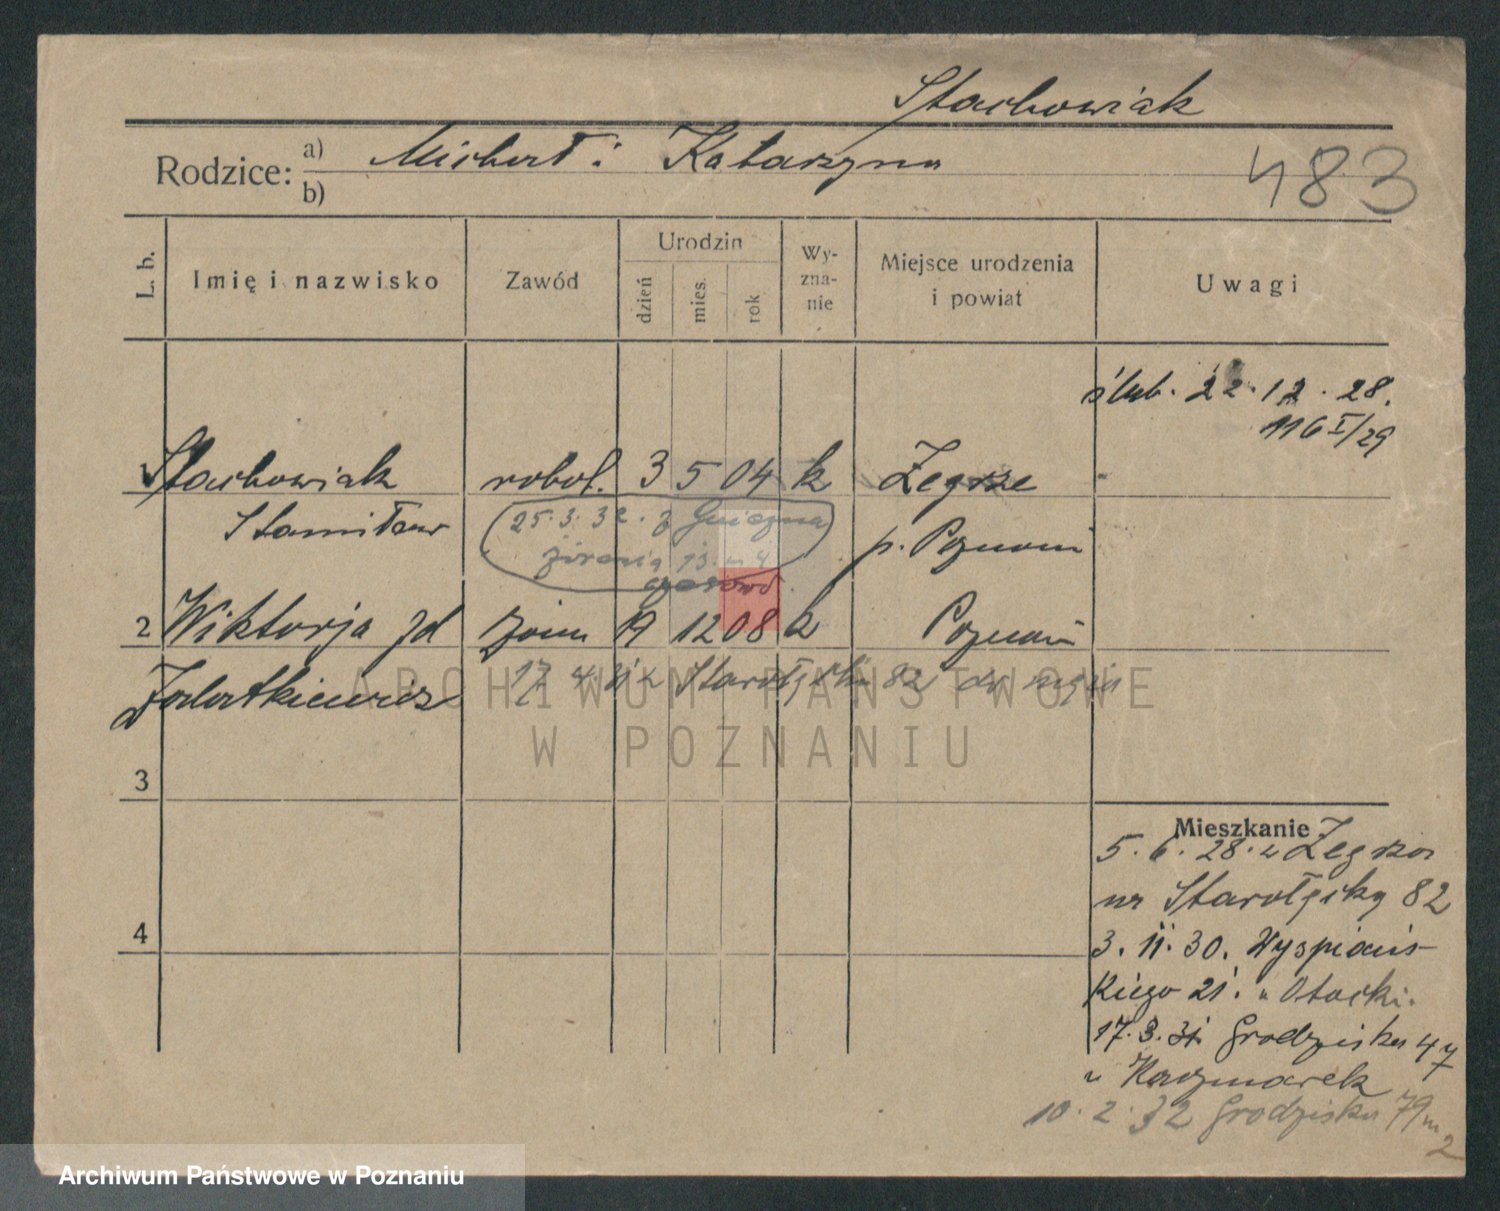 Stachowiak
Rodzice: a) Michał i Katarzyna
b)
483
L. b.
Imię i nazwisko
Zawód
Urodzin
dzień
mies.
rok
Wy-
zna-
nie
Miejsce urodzenia
i powiat
Uwagi
ślub. 22.12.28.
116 I/29
1 Stachowiak robot. 3 5 04 k Żegrze
Stanisław
25.3.32. z Gniezna
p. Poznań
czasowo
2 Wiktorja zd 19 12 08 k Poznań
17 4 Starołęcka 82
3
4
Mieszkanie
5.6.28. Żegrze
Starołęcka 82
3.11.30. Wyspiańs-
kiego 21. u Otocki.
17.3.31. Grodziska 47
u Kaczmarek
10.2.32 Grodziska 79 m 2
ARCHIWUM PAŃSTWOWE
W POZNANIU
Archiwum Państwowe w Poznaniu